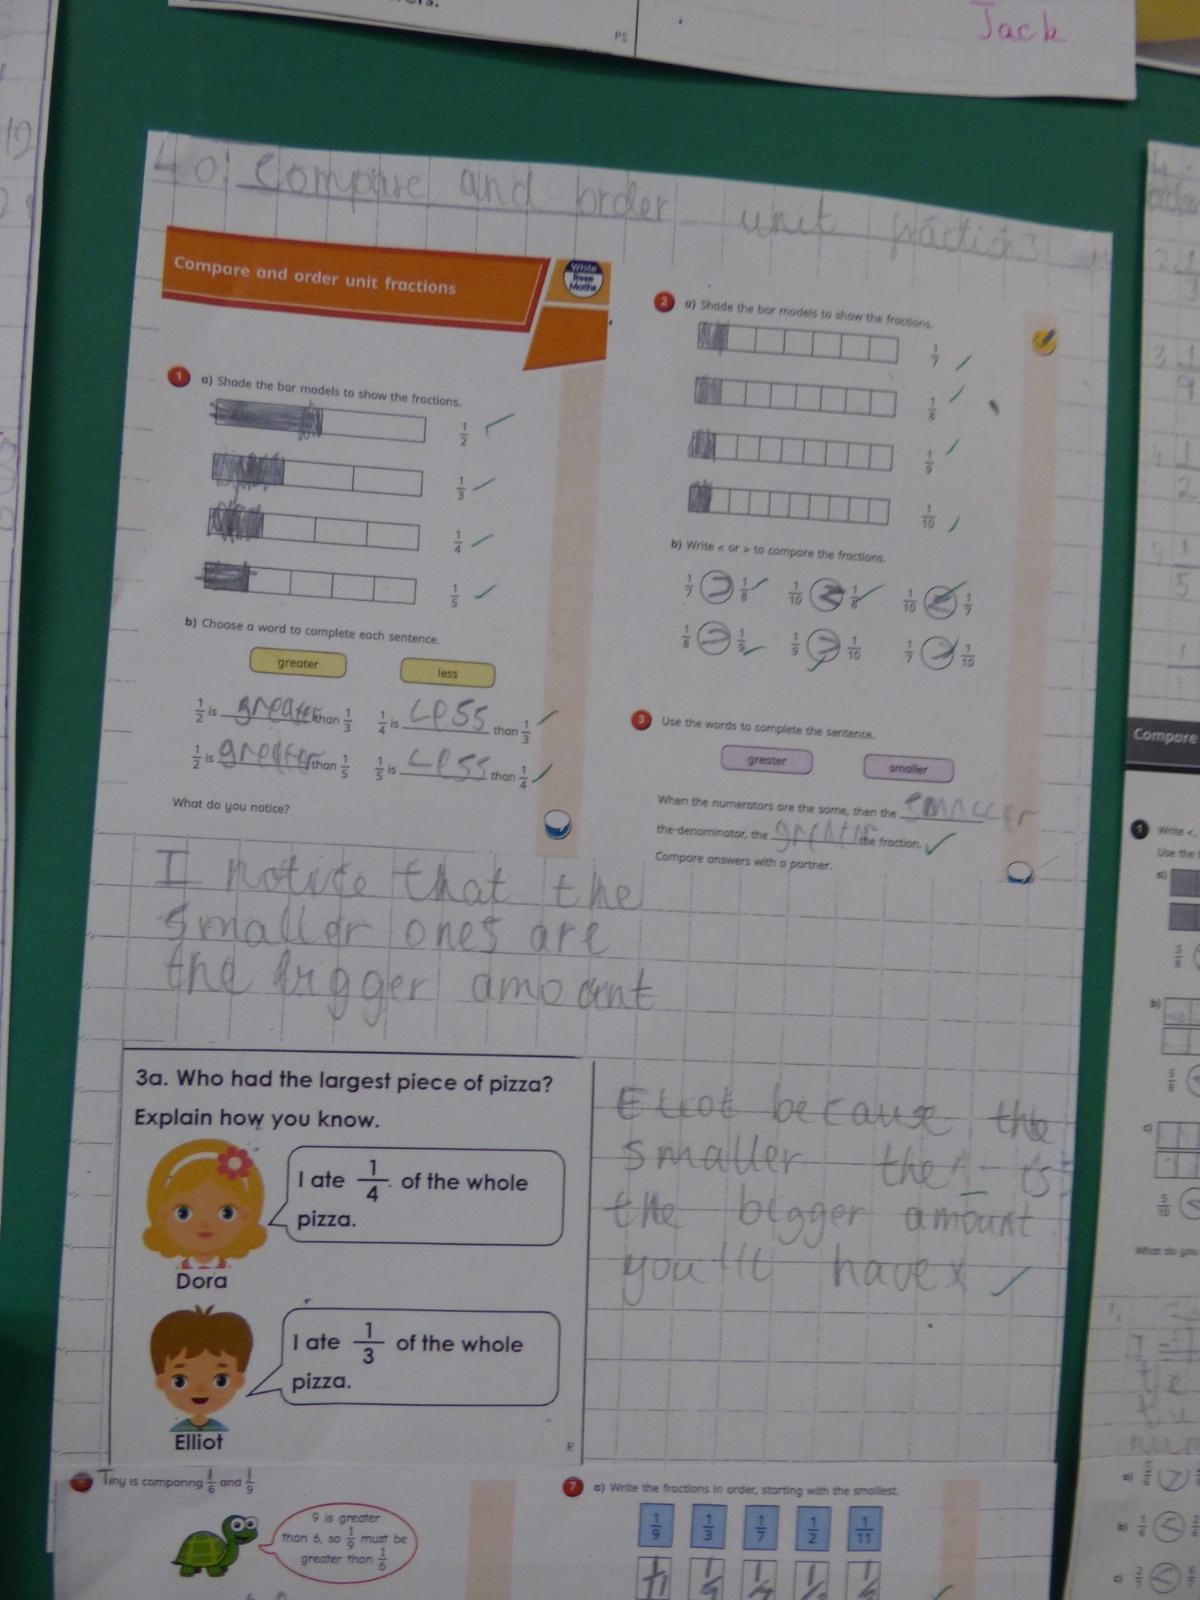 Jack
PS
40 Compare and order unit fractions
Compare and order unit fractions
White
Rose
Maths
1 a) Shade the bar models to show the fractions.
1/2
1/3
1/4
1/5
b) Choose a word to complete each sentence.
greater less
1/2 is greater than 1/3 1/4 is Less than 1/3
1/2 is greater than 1/5 1/5 is Less than 1/4
What do you notice?
I notice that the
smaller ones are
the bigger amount
2 a) Shade the bar models to show the fractions.
1/7
1/8
1/9
1/10
b) Write < or > to compare the fractions.
1/7 > 1/8 1/10 < 1/8 1/10 < 1/7
1/8 > 1/9 1/9 > 1/10 1/7 > 1/10
3 Use the words to complete the sentence.
greater smaller
When the numerators are the same, then the smaller
the denominator, the greater the fraction.
Compare answers with a partner.
3a. Who had the largest piece of pizza?
Explain how you know.
I ate 1/4 of the whole
pizza.
Dora
I ate 1/3 of the whole
pizza.
Elliot
R
Eliot because the
smaller the is
the bigger amount
you'll have
Tiny is comparing 1/6 and 1/9
9 is greater
than 6, so 1/9 must be
greater than 1/6
7 a) Write the fractions in order, starting with the smallest.
1/9 1/3 1/7 1/2 1/11
Compare
1 Write <,
Use the
a)
5/8
b)
5/8
c)
5/10
What do you